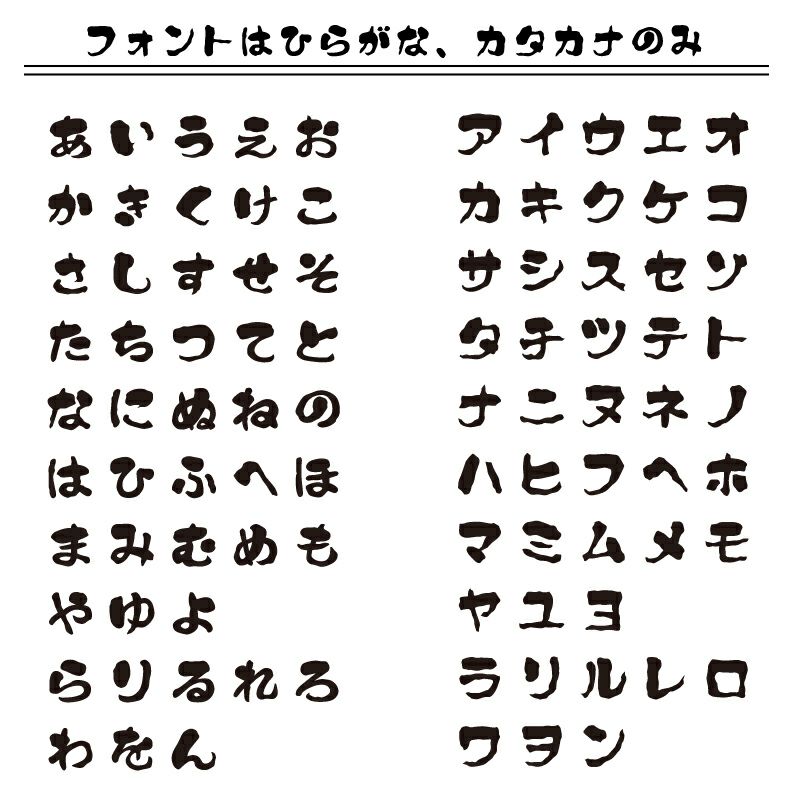 フォントはひらがな、カタカナのみ
あいうえお
かきくけこ
さしすせそ
たちつてと
なにぬねの
はひふへほ
まみむめも
やゆよ
らりるれろ
わをん
アイウエオ
カキクケコ
サシスセソ
タチツテト
ナニヌネノ
ハヒフヘホ
マミムメモ
ヤユヨ
ラリルレロ
ワヲン